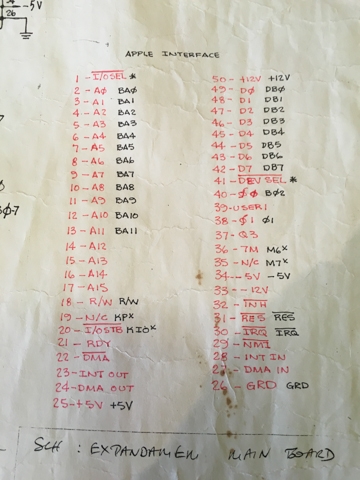 -5V
26
APPLE INTERFACE
1 - I̅/̅O̅S̅E̅L̅ *
2 - AØ BAØ
3 - A1 BA1
4 - A2 BA2
5 - A3 BA3
6 - A4 BA4
7 - A5 BA5
8 - A6 BA6
9 - A7 BA7
10 - A8 BA8
11 - A9 BA9
12 - A10 BA10
13 - A11 BA11
14 - A12
15 - A13
16 - A14
17 - A15
18 - R/W R/W
19 - N/C KPx
20 - I̅/̅O̅S̅T̅B̅ KIOx
21 - RDY
22 - D̅M̅A̅
23 - INT OUT
24 - DMA OUT
25 - +5V +5V
50 - +12V +12V
49 - DØ DBØ
48 - D1 DB1
47 - D2 DB2
46 - D3 DB3
45 - D4 DB4
44 - D5 DB5
43 - D6 DB6
42 - D7 DB7
41 - D̅E̅V̅ ̅S̅E̅L̅ *
40 - ØØ BØ2
39 - USER1
38 - Ø1 Ø1
37 - Q3
36 - 7M M6x
35 - N/C M7x
34 - -5V -5V
33 - -12V
32 - I̅N̅H̅
31 - R̅E̅S̅ R̅E̅S̅
30 - I̅R̅Q̅ I̅R̅Q̅
29 - N̅M̅I̅
28 - INT IN
27 - DMA IN
26 - GRD GRD
SCH : EXPANDAMEM MAIN BOARD